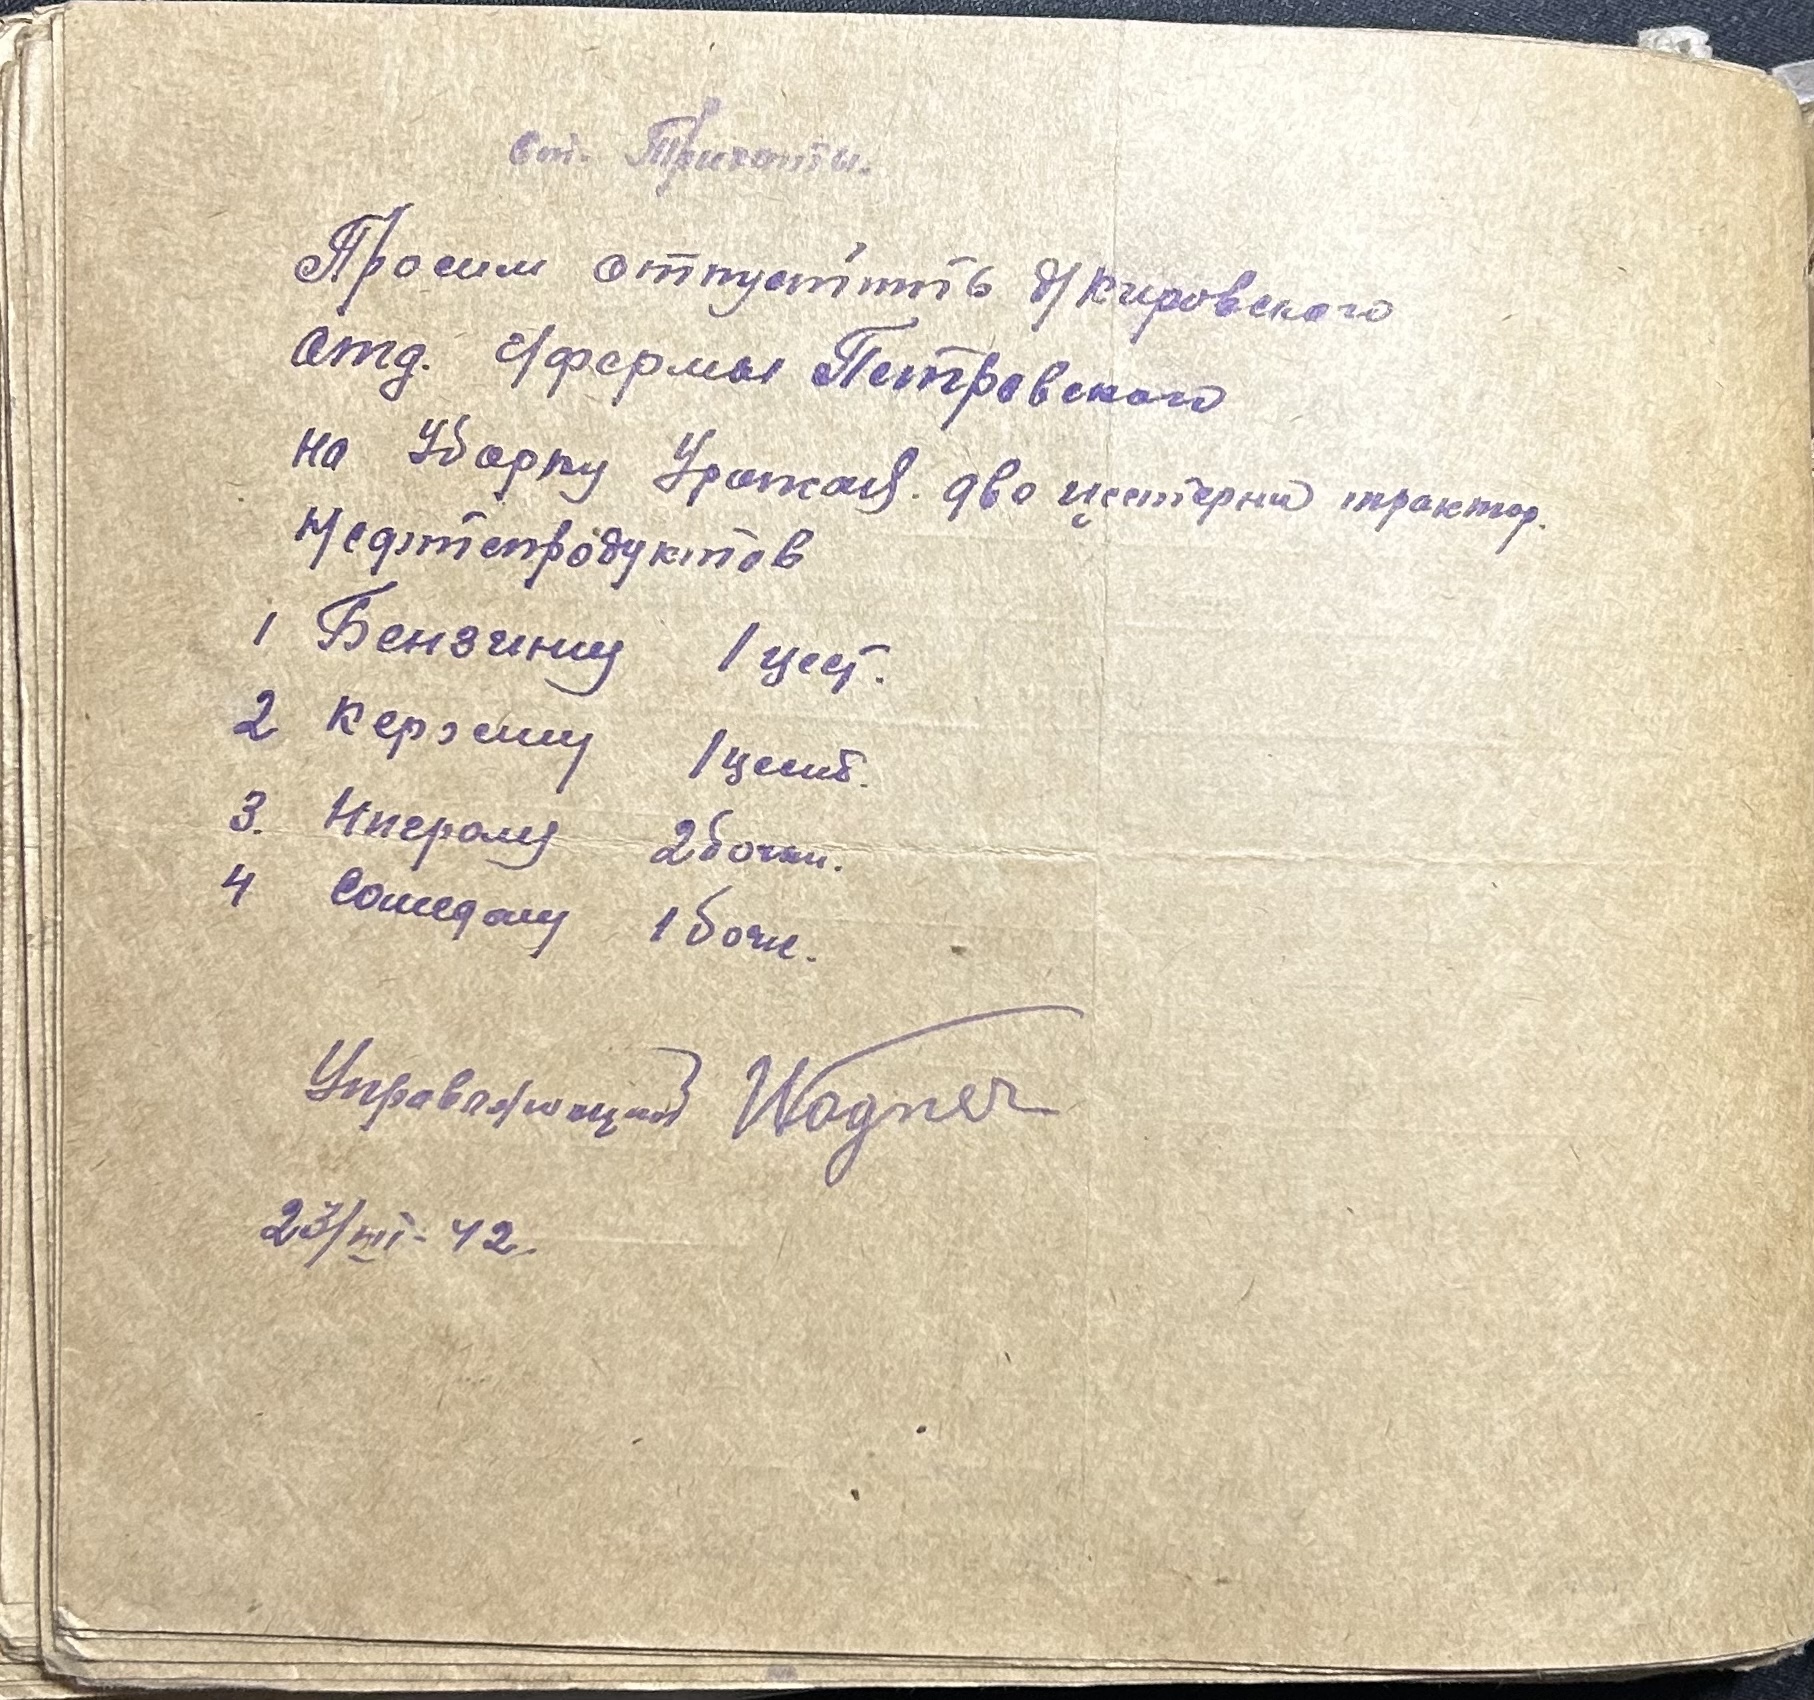 ст. Трихаты.
Просим отпустить д/Кировского
отд. с/фермы Петровского
на Уборку Урожая. два цестерни трактор.
Нефтепродуктов
1 Бензину 1 цест.
2 Керосину 1 цест.
3. Нигролу 2 бочки.
4 Солидолу 1 бочк.
Управляющий Wagner
23/VII-42.